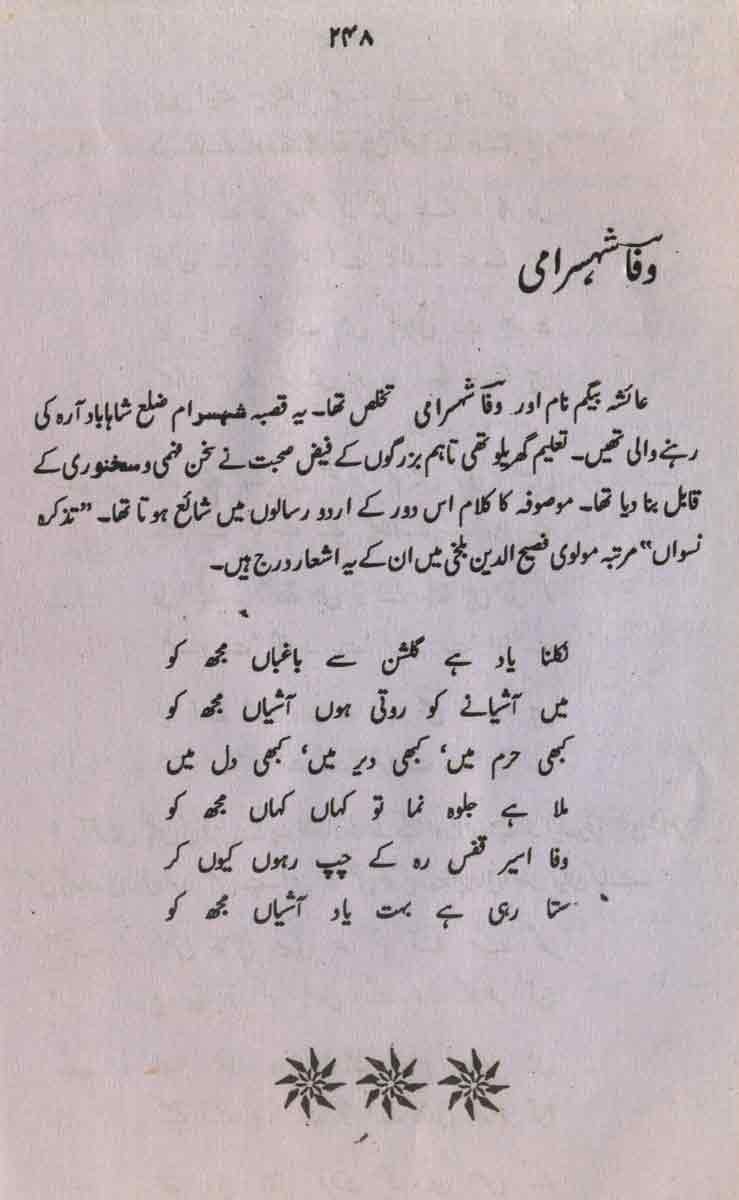 ۲۴۸
وفاؔ شہسرامی
عائشہ بیگم نام اور وفاؔ شہسرامی تخلص تھا۔ یہ قصبہ شہسرام ضلع شاہاباد آرہ کی
رہنے والی تھیں۔ تعلیم گھریلو تھی تاہم بزرگوں کے فیض صحبت نے سخن فہمی و سخنوری کے
قابل بنا دیا تھا۔ موصوفہ کا کلام اس دور کے اردو رسالوں میں شائع ہوتا تھا۔ ”تذکرہ
نسواں“ مرتبہ مولوی فصیح الدین بلخی میں ان کے یہ اشعار درج ہیں۔
نکلنا یاد ہے گلشن سے باغباں مجھ کو
میں آشیانے کو روتی ہوں آشیاں مجھ کو
کبھی حرم میں، کبھی دیر میں، کبھی دل میں
ملا ہے جلوہ نما تو کہاں کہاں مجھ کو
وفا اسیر قفس رہ کے چپ رہوں کیوں کر
ستا رہی ہے بہت یاد آشیاں مجھ کو